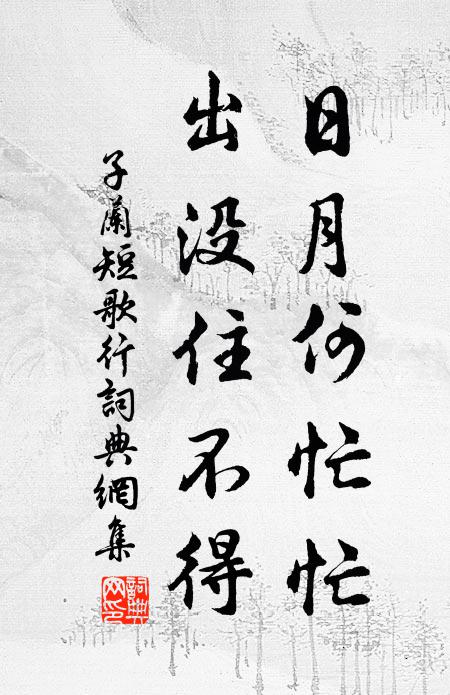 日月何忙忙
出没住不得
子蘭短歌行詞典網集
詞典网印